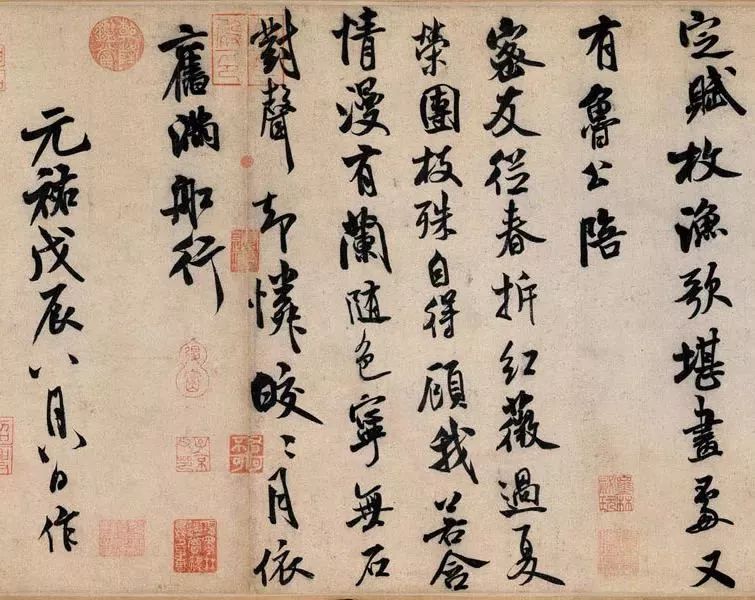 定賦枚漁歌堪畫處又
有魯公陪
密友從春拆紅薇過夏
榮團枝殊自得顧我若含
情漫有蘭隨色寧無石
對聲却憐皎〻月依
舊滿船行
元祐戊辰八月八日作